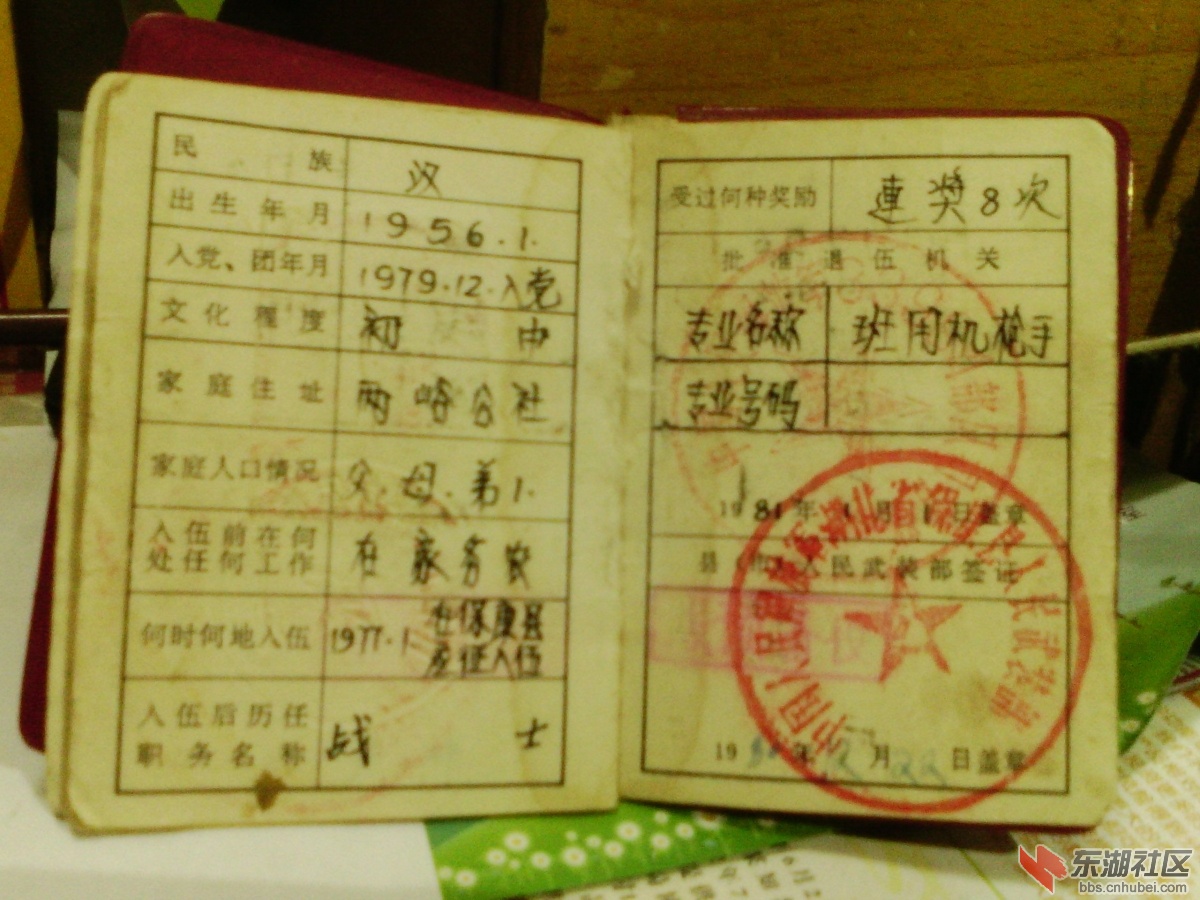 民族 汉
出生年月 1956.1.
入党、团年月 1979.12.入党
文化程度 初中
家庭住址 两峪公社
家庭人口情况 父.母.弟1.
入伍前在何
处任何工作 在家务农
何时何地入伍 1977.1. 在保康县
应征入伍
入伍后历任
职务名称 战士
受过何种奖励 連奖8次
批准退伍机关
专业名称 班用机枪手
专业号码
1981年1月1日盖章
县(市)人民武装部签证
中国人民解放军湖北省保康县人民武装部
19 年12月22日盖章
东湖社区
bbs.cnhubei.com